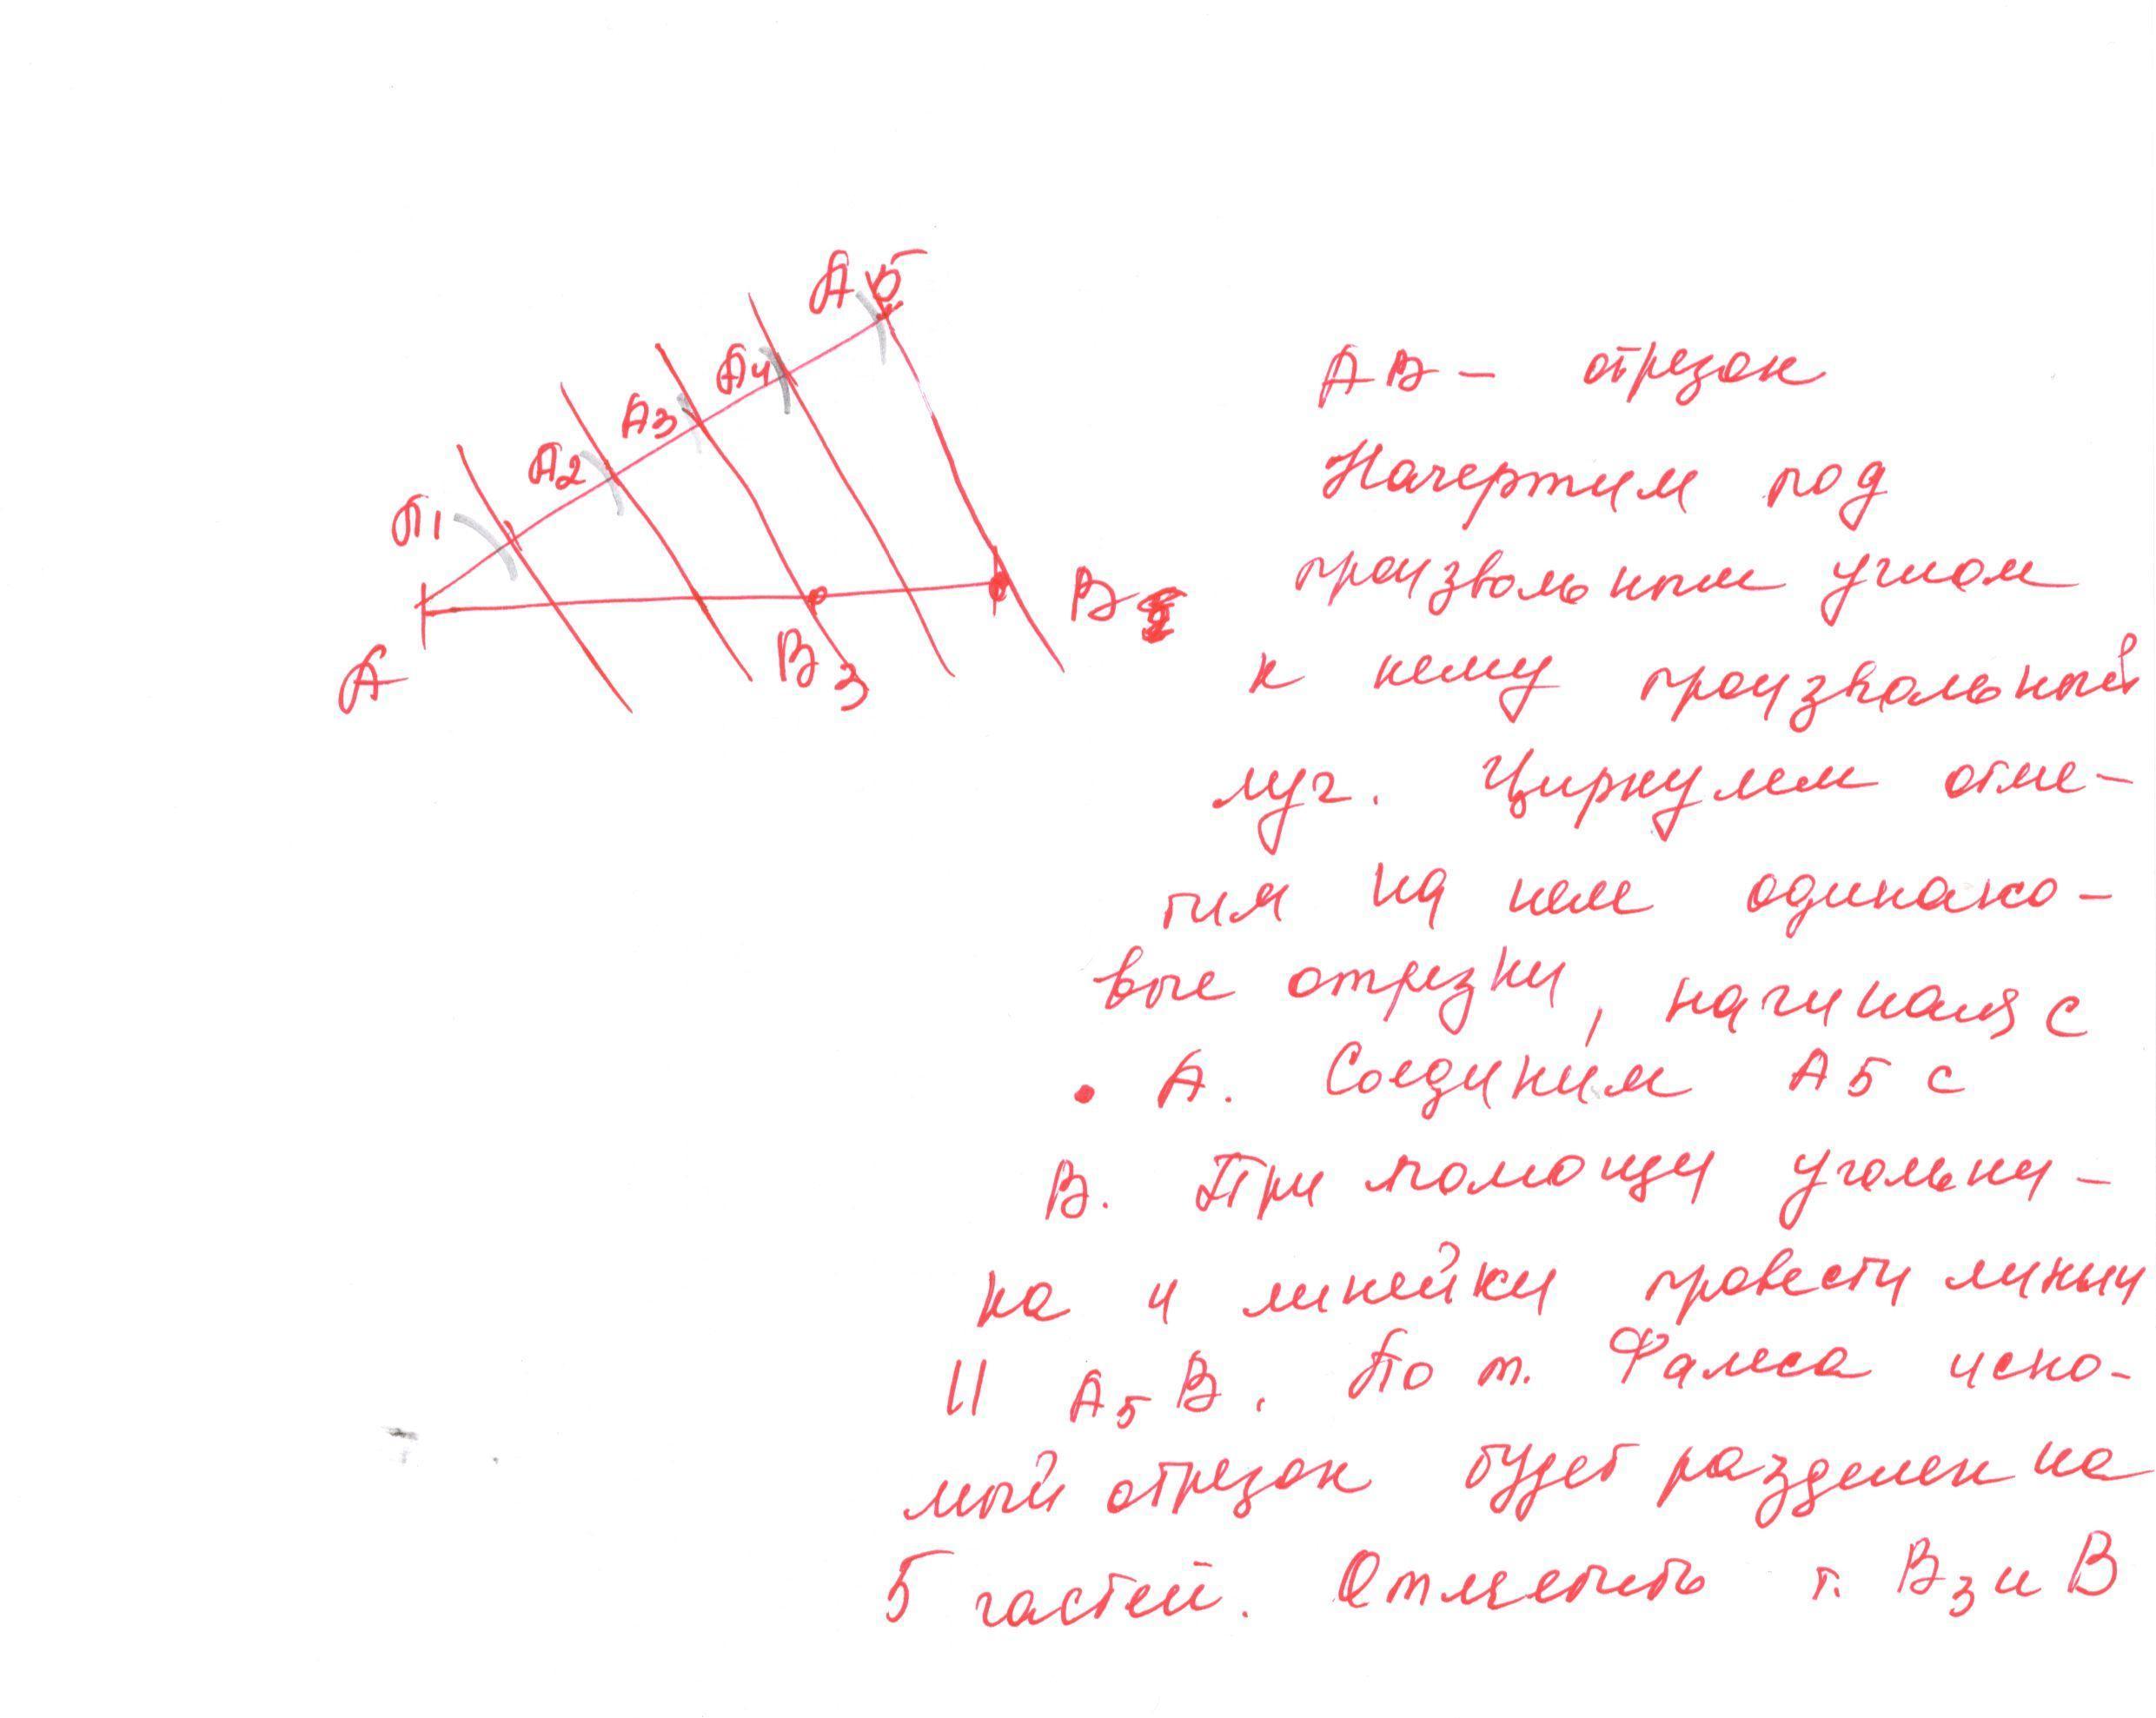 А5
А4
А3
А2
А1
А
В3
В
АВ – отрезок
Начертим под
произвольным углом
к нему произвольный
луч. Циркулем отме-
тим на нем одинако-
вые отрезки, начиная с
• А. Соединим А5 с
В. При помощи угольни-
ка и линейки провести линии
|| А5В. По т. Фалеса иско-
мый отрезок будет разделен на
5 частей. Отметить т. В3 и В